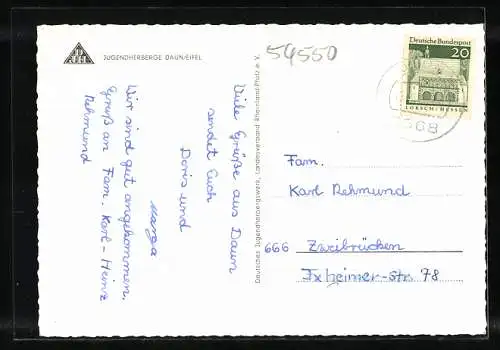 JUGENDHERBERGE DAUN/EIFEL
Viele Grüße aus Daun
sendet Euch
Doris und
Marga
Wir sind gut angekommen.
Gruß an Fam. Karl-Heinz
Rehmund
Deutsches Jugendherbergswerk, Landesverband Rheinland/Pfalz e. V.
54550
Deutsche Bundespost
20
LORSCH/HESSEN
568
Fam.
Karl Rehmund
666 Zweibrücken
Ixheimer-str 78